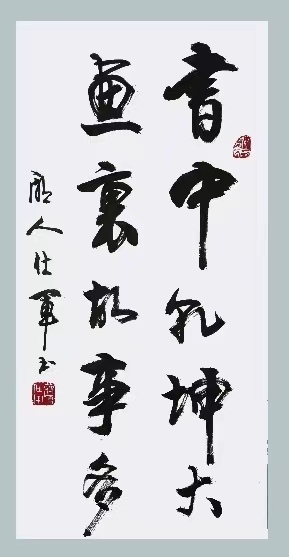 書中乾坤大
畫裏故事多
人仕軍书